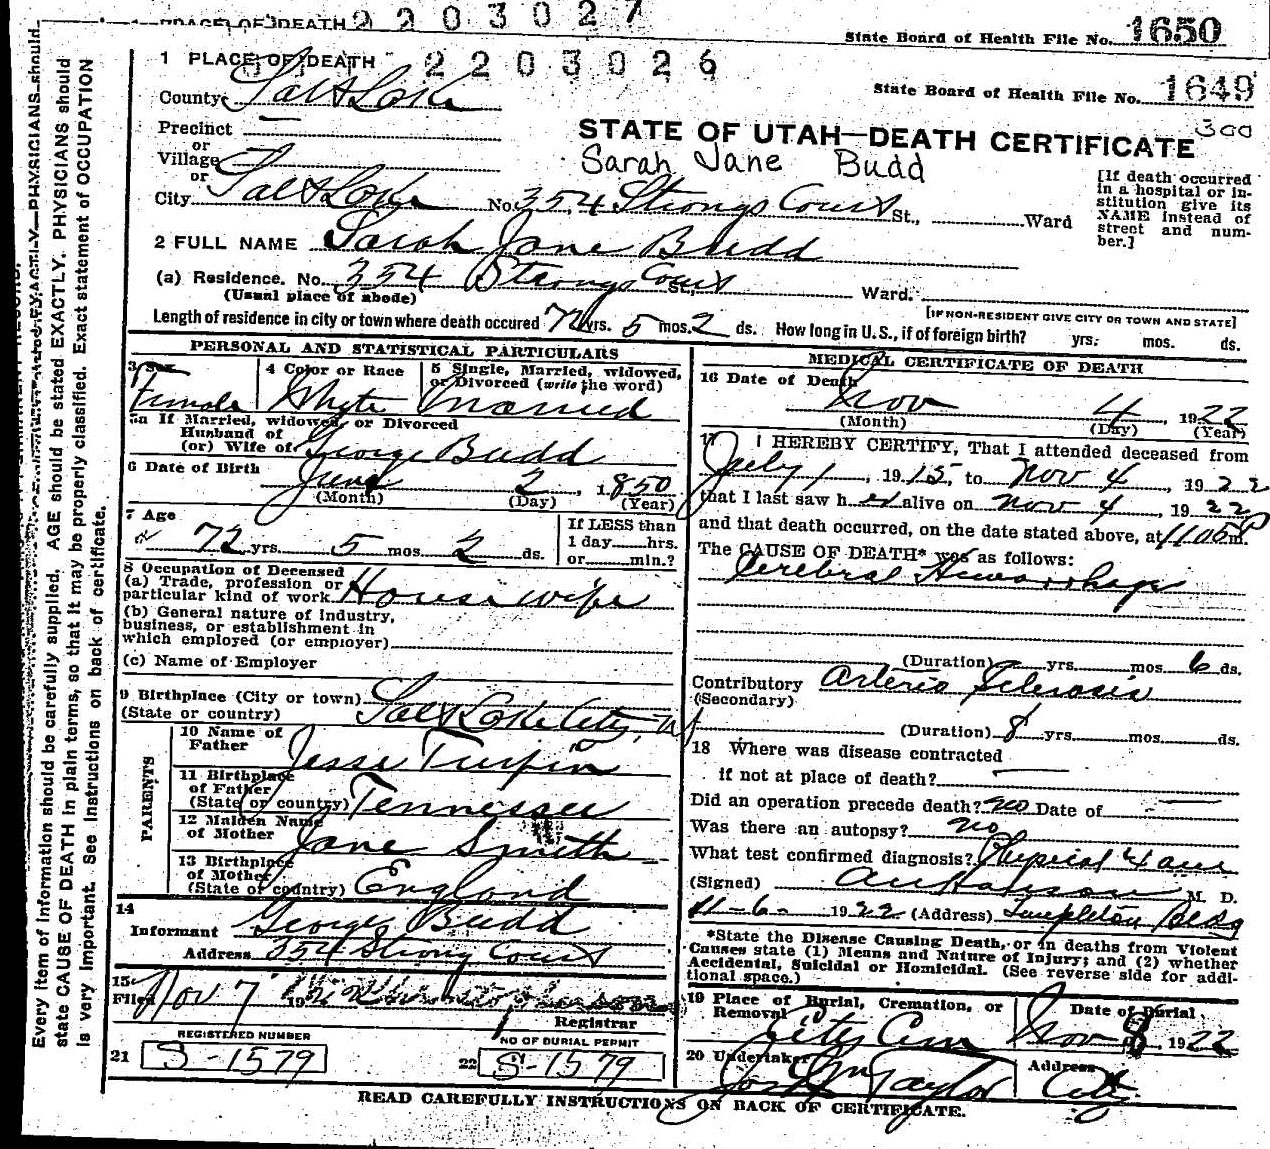 PLACE OF DEATH 2203027
State Board of Health File No. 1650
1 PLACE OF DEATH 2203026
State Board of Health File No. 1649
County Salt Lake
300
Precinct
or
Village
or
STATE OF UTAH—DEATH CERTIFICATE
Sarah Jane Budd
City Salt Lake No. 354 Strongs Court St., Ward
[If death occurred in a hospital or institution give its NAME instead of street and number.]
2 FULL NAME Sarah Jane Budd
(a) Residence. No. 354 Strongs Court St., Ward.
(Usual place of abode)
[IF NON-RESIDENT GIVE CITY OR TOWN AND STATE]
Length of residence in city or town where death occured 72 yrs. 5 mos. 2 ds. How long in U.S., if of foreign birth? yrs. mos. ds.
PERSONAL AND STATISTICAL PARTICULARS
3 Sex
Female
4 Color or Race
Whyte
5 Single, Married, widowed,
or Divorced (write the word)
Married
5a If Married, widowed, or Divorced
Husband of
(or) Wife of George Budd
6 Date of Birth June 2, 1850
(Month) (Day) (Year)
7 Age
72 yrs. 5 mos 2 ds.
If LESS than
1 day hrs.
or min.?
8 Occupation of Deceased
(a) Trade, profession or
particular kind of work. House wife
(b) General nature of Industry,
business, or establishment in
which employed (or employer)
(c) Name of Employer
9 Birthplace (City or town) Salt Lake City, U
(State or country)
PARENTS
10 Name of
Father Jesse Turpin
11 Birthplace
of Father
(State or country) Tennessee
12 Maiden Name
of Mother Jane Smith
13 Birthplace
of Mother
(State of country) England
14
Informant George Budd
Address 354 Strong Court
15
Filed Nov 7 1922
Registrar
REGISTERED NUMBER
21 S-1579
NO OF BURIAL PERMIT
22 S-1579
MEDICAL CERTIFICATE OF DEATH
16 Date of Death
Nov 4, 1922
(Month) (Day) (Year)
17 I HEREBY CERTIFY, That I attended deceased from
July 1, 1915, to Nov 4, 1922
that I last saw h er alive on Nov 4, 1922
and that death occurred, on the date stated above, at 1105 P m.
The CAUSE OF DEATH* was as follows:
Cerebral Hemorrhage
(Duration) yrs. mos. 6 ds.
Contributory Arterio Sclerosis
(Secondary)
(Duration) 8 yrs. mos. ds.
18 Where was disease contracted
if not at place of death?
Did an operation precede death? no Date of
Was there an autopsy? no
What test confirmed diagnosis? Physical Exam
(Signed) M. D.
11-6- 1922 (Address) Templeton Bldg
*State the Disease Causing Death, or in deaths from Violent
Causes state (1) Means and Nature of Injury; and (2) whether
Accidental, Suicidal or Homicidal. (See reverse side for addi-
tional space.)
19 Place of Burial, Cremation, or
Removal
City Cem
Date of Burial
Nov 8, 1922
20 Undertaker
Joseph Wm Taylor
Address
City
READ CAREFULLY INSTRUCTIONS ON BACK OF CERTIFICATE.
Every item of information should be carefully supplied. AGE should be stated EXACTLY. PHYSICIANS should
state CAUSE OF DEATH in plain terms, so that it may be properly classified. Exact statement of OCCUPATION
is very important. See instructions on back of certificate.